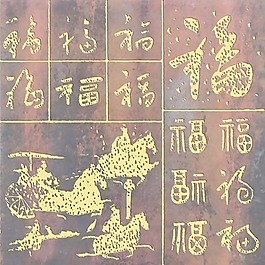 福福福
福福福
福
福福
福福
福福